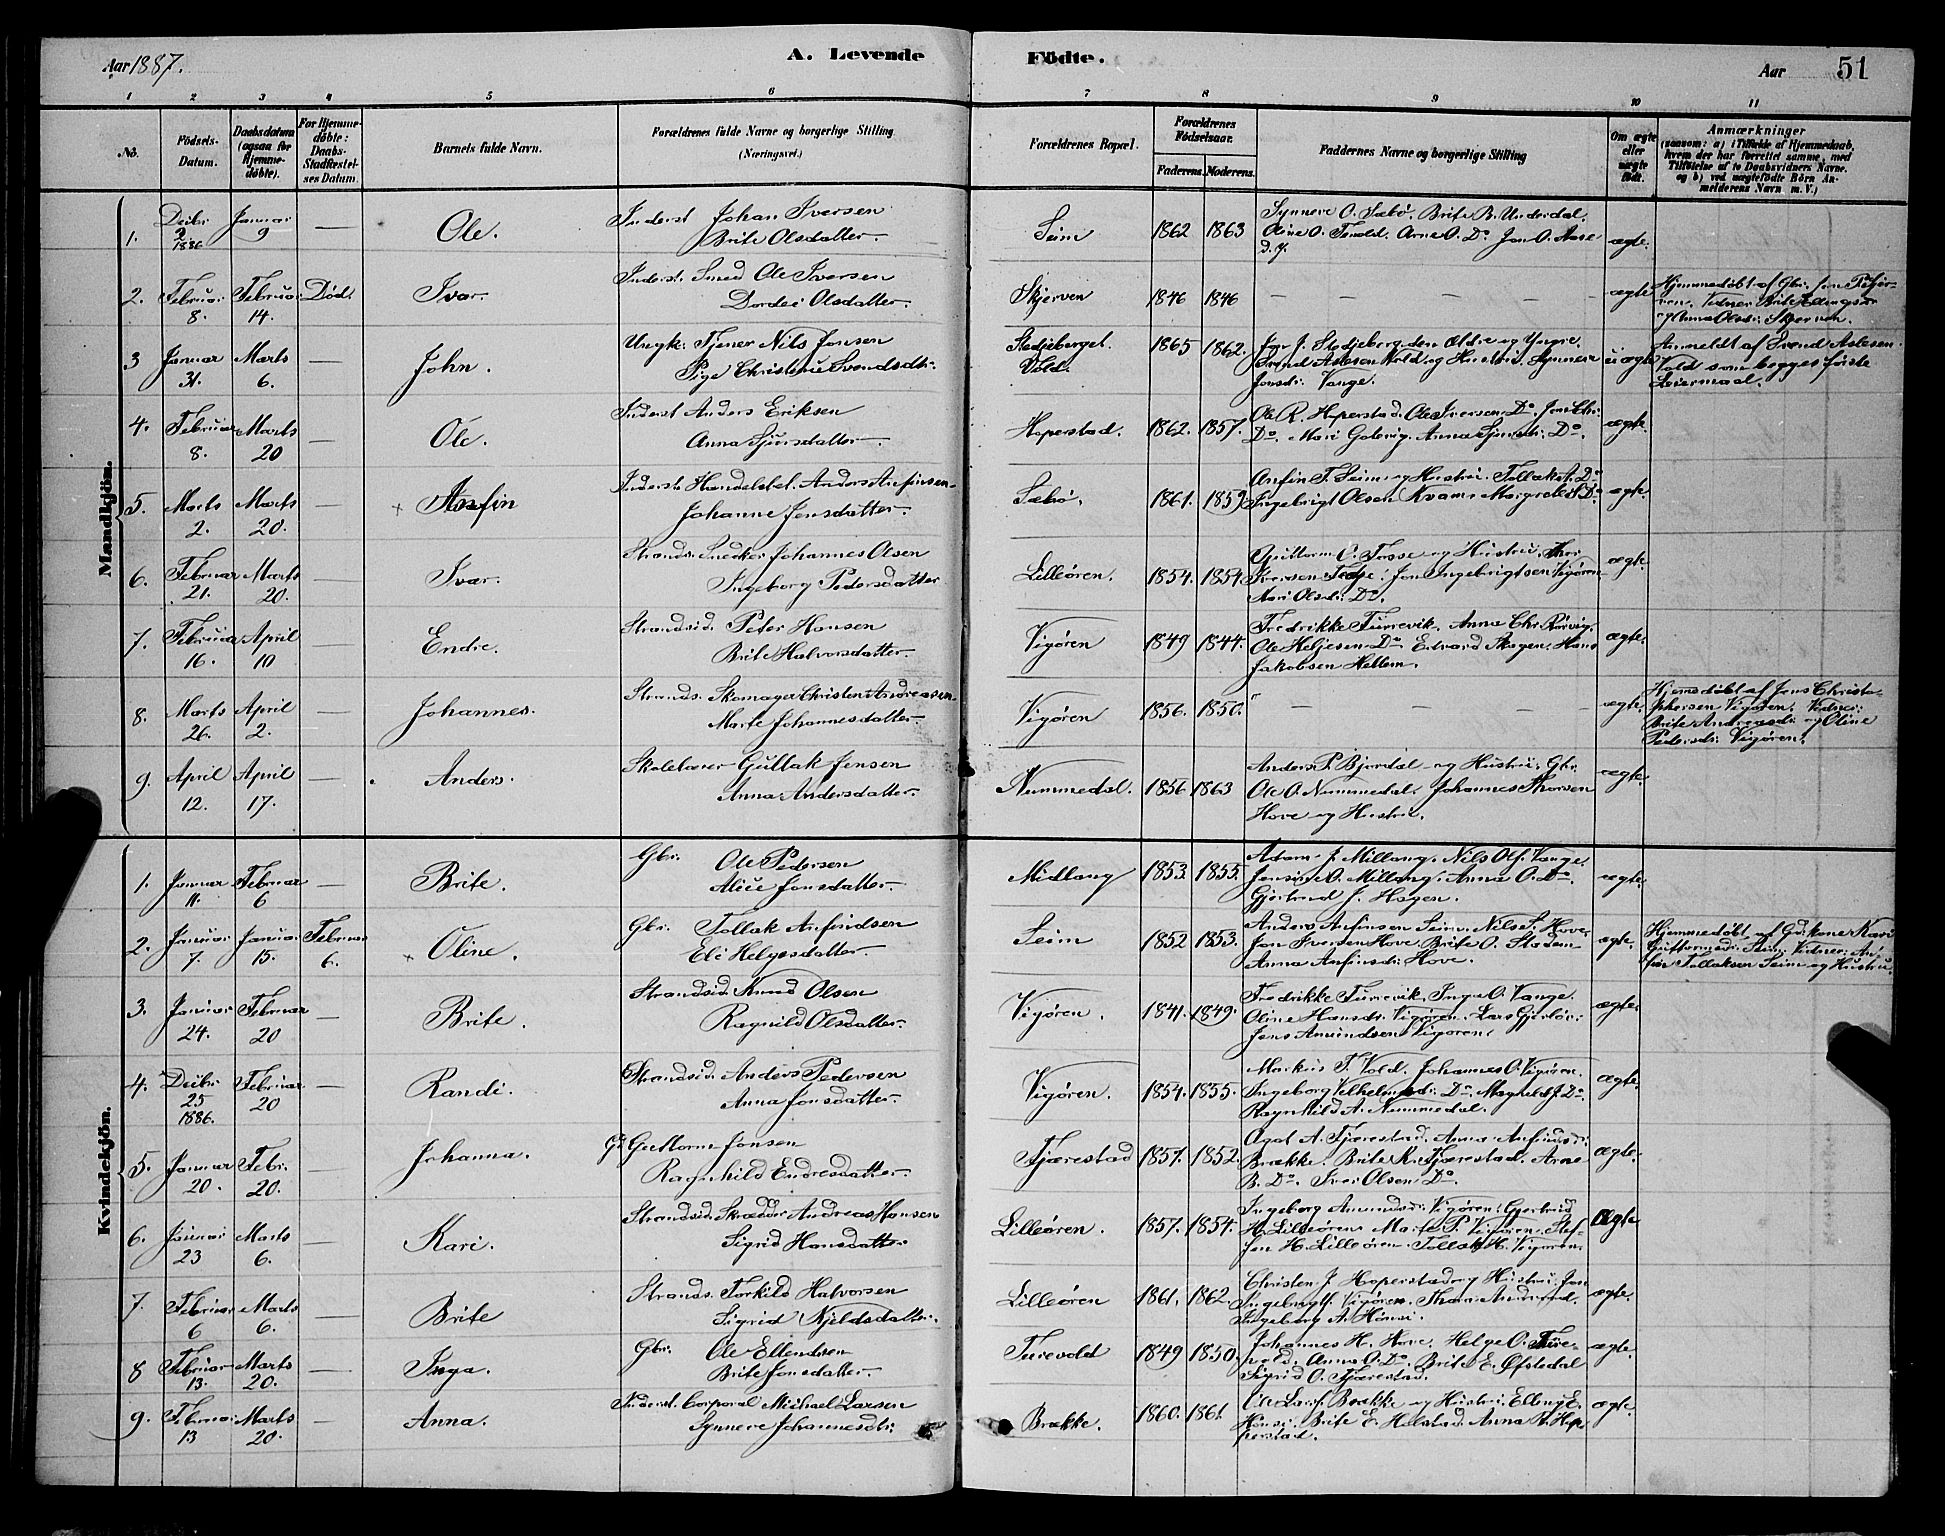 Aar 1887.
A. Levende Fødte.
Aar 51
1 2 3 4 5 6 7 8 9 10 11
No.
Födsels-Datum.
Daabsdatum (ogsaa for Hjemmedöbte).
For Hjemmedöbte: Daabs-Stadfæstelses Datum.
Barnets fulde Navn.
Forældrenes fulde Navne og borgerlige Stilling (Næringsvei.)
Forældrenes Bopæl.
Forældrenes Födselsaar.
Faderens. Moderens.
Faddernes Navne og borgerlige Stilling
Om ægte eller uægte født.
Anmærkninger
(saasom: a) i Tilfælde af Hjemmedaab, hvem der har forrettet samme, med Tilføielse af to Daabsvidners Navne. og b) ved uægtefödte Börn Anmelderens Navn m. V.)
Mandkjön.
1. Decbr. 2. 1886 Januar 9 — Ole.
Inderst Johan Iversen
Brite Olsdatter.
Seim 1862 1863
Synneve O. Sæbö. Brite B. Underdal.
Oline O. Tenold. Arne O. Do. Jon O. Aase
d. y.
ægte.
2. Februar 8. Februar 14. Död. Ivar.
Inderst. Smed Ole Iversen
Dordei Olsdatter.
Skjerven 1846 1846 — — — — ægte
Hjemmedöbt af Gbr.
Vidner Brite
og Anna Olsdr. Skjerven.
3 Januar 31. Marts 6. — John.
Ungk. Tjener Nils Jonsen
Pige Christine Svendsdtr.
Stedjeberget. Vold. 1865 1862.
J. Stedjeberg den Ældre og Yngre.
Svend Aslesen Vold og Hustru. Synneve
Jonsdr. Vange.
uægte
Anmeldt af Svend Aslesen
Vold som begges første
Leiermaal.
4. Februar 8. Marts 20 — Ole.
Inderst Anders Eriksen
Anna Sjursdatter.
Hoperstad. 1862. 1857.
Ole R. Hoperstad. Ole Iversen Do. Jon Chr.
Do. Mari Anna Sjursdr. Do.
ægte.
5. Marts 2. Marts 20. — Anfin
Inderst Handelsbet. Anders Anfinsen
Johanne Jensdatter.
Sæbö. 1861. 1859
Anfin T. Seim og Hustru. Tollak A. Do
Ingebrigt Olsen Kvam. Margrete Do
ægte.
6. Februar 21. Marts 20. — Ivar.
Strands. Snedker Johannes Olsen
Ingeborg Pedersdatter
Lilleören. 1854. 1854
Guttorm O. Tosse og Hustru. Iver
Iversen Jon Ingebrigtsen Vigören
Kari Olsdr. Do.
ægte.
7. Februar 16. April 10 — Endre.
Strandsid. Peter Hansen
Brite Halvorsdatter.
Vigören 1849 1844.
Fredrikke Turrevik. Anna Chr.
Ole Heljesen Do Edvard Skagen. Hans
Jakobsen Hellem.
ægte.
8. Marts 26. April 2. — Johannes.
Strands. Skomager Christen Andreasen
Marte Johannesdatter.
Vigören 1856. 1850. — — — ægte.
Hjemdöbt af Jens Christo-
phersen Vigören. Vidner:
Brite Andreasdr. og Oline
Pedersdr. Vigören.
9. April 12. April 17. — Anders.
Skolelærer Gullak Jensen
Anna Andersdatter.
Nummedal. 1856 1863
Anders P. Bjordal og Hustru. Gbr.
Ole O. Nummedal. Johannes Thorsen
Hove og Hustru.
ægte.
Kvindekjön.
1. Januar 11. Februar 6 — Brite.
Gbr. Ole Pedersen
Alice Jonsdatter.
Midlang 1853. 1855.
Adam J. Millang. Nils Ols. Vange.
Jensine O. Millang. Anna O. Do.
Gjertrud J. Hagen.
ægte.
2. Januar 7. Januar 15. Februar 6. Oline.
Gbr. Tollak Anfindsen
Eli Helgesdatter.
Seim 1852 1853.
Anders Anfinsen Seim. Nils S. Hove
Jon Iversen Hove. Brite O. Stadem
Anna Anfinsdr. Hove.
ægte.
Hjemmedöbt af Gdkone Kari
Guttormsdr. Seim. Vidner: An-
fin Tollaksen Seim og Hustru.
3. Januar 24. Februar 20 — Brite.
Strandsid. Knud Olsen
Ragnild Olsdatter.
Vigören. 1841. 1849.
Fredrikke Turrevik. Inga O. Vange.
Oline Hansdr. Vigören. Lars
Jens Amundsen Vigören.
ægte.
4. Decbr. 25 1886. Februar 20 — Randi.
Strandsid. Anders Pedersen
Anna Jonsdatter.
Vigören. 1854. 1855.
Markus T. Vold. Johannes O. Vigören.
Ingeborg Vilhelmsdr. Do. Magnild J. Do.
Ragnhild A. Nummedal.
ægte.
5. Januar 20. Febr. 20. — Johanna.
Gbr. Guttorm Jonsen
Ragnhild Endresdatter.
Tjærestad 1857. 1852.
Agot A. Tjærestad. Anna Anfinsdr.
Brække. Brite K. Tjærestad. Arne
B. Do. Iver Olsen Do.
ægte.
6. Januar 23 Marts 6. — Kari.
Strandsid. Skrædder Andreas Hansen
Sigrid Hansdatter
Lilleören. 1857. 1854.
Ingeborg Amundsdr. Vigören. Gjertrud
H. Lilleören. Marte P. Vigören. Stef-
fen H. Lilleören. Tollak H. Vigören.
Ægte
7. Februar 6 Marts 6. — Brite
Strands. Torkild Halvorsen
Sigrid Kjeldsdatter.
Lilleören 1861. 1862.
Christen J. Hoperstad og Hustru. Jon
Ingebrigts. Vigören.
Ingeborg A. Hönsi.
ægte.
8 Februar 13. Marts 20. — Inga.
Gbr. Ole Ellendsen
Brite Jonsdatter.
Turevold 1849 1850.
Johannes H. Hove. Helge O. Ture-
vold. Anna O. Do. Brite E. Öfstedal
Sigrid O. Tjærestad.
ægte.
9. Februar 13 Marts 20. — Anna.
Inderst. Corporal Michael Larsen
Synneve Johannesdtr.
Brække. 1860. 1861
Ole Larss. Brække og Hustru. Elling E.
Hönsi. Brite E. Hölstad. Anna R. Hop-
perstad.
ægte.